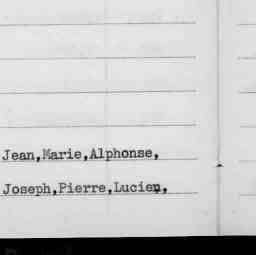 Jean,Marie,Alphonse,
Joseph,Pierre,Lucien,